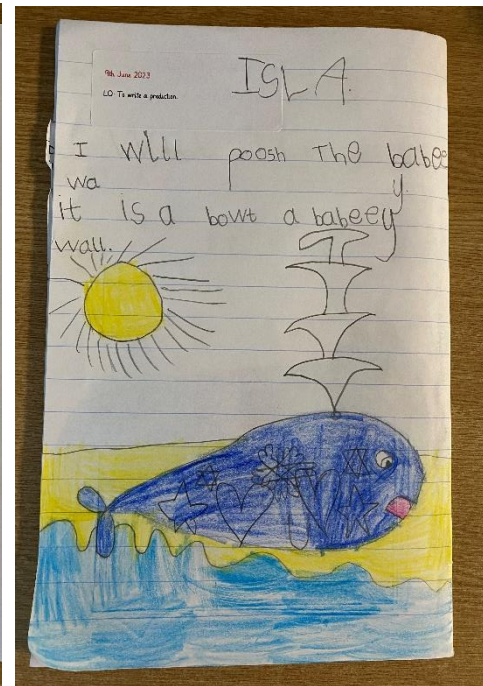 ISLA.
9th June 2023
LO: To write a prediction.
I will poosh The babeey.
wa
it is a bowt a babeey
wall.